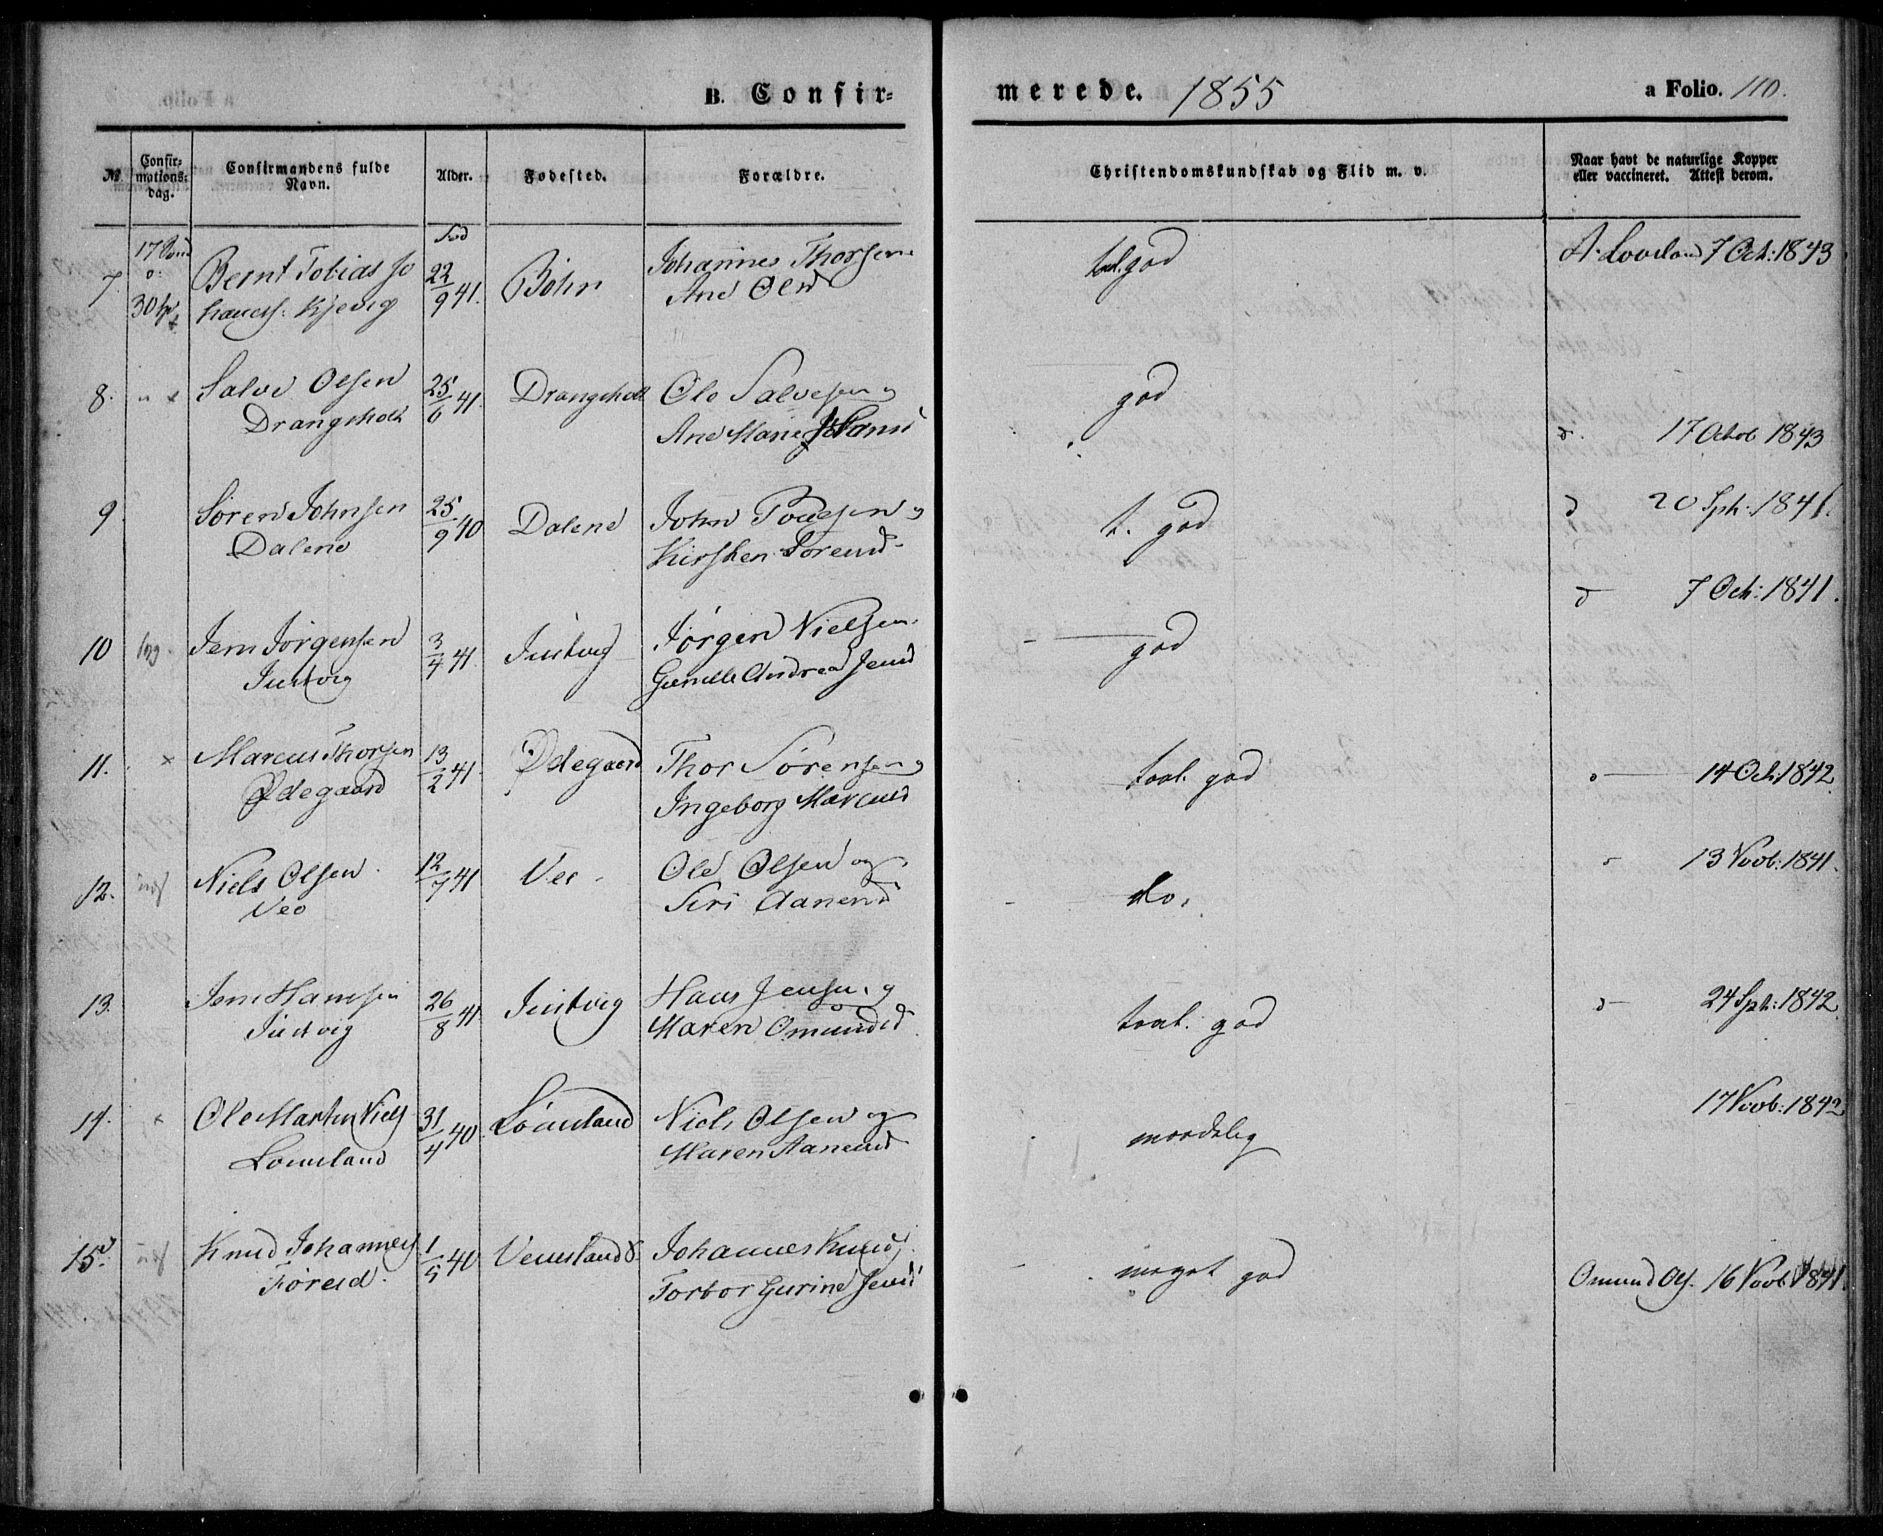 B. Confirmerede. 1855
a Folio. 110.
№
Confirmations-dag.
Confirmandens fulde Navn.
Alder.
Fødested.
Forældre.
Christendomskundskab og Flid m. v.
Naar havt de naturlige Kopper eller vaccineret. Attest derom.
7 30 Bernt Tobias Jo 22/9 41. Böhn Johannes Thorsen tal. god 7 Oct: 1843
hanes: Kjevig Ane Olsd
8. Salve Olsen 25/6 41. Drangsholt Ole Salvesen og god
Drangsholt Ane Marie d. 17 Octob 1843
9 Sören Johnsen 25/9 40 Dalene John t. god d 20 Spt: 1841.
Dalene Kirsten
10 Jens Jörgensen 3/4 41 Justvig Jörgen Nielsen god d 7 Oct: 1841.
Justvig Gunille Andrea Jensd
11. Marcus Thorsen 13/2 41. Ødegaard Thor Sörensen og taal. god 14 Oct: 1842
Ødegaard Ingeborg Marcusd
12. Niels Olsen 12/7 41 Vee Ole Olsen og do. 13 Novb: 1841.
Vee Siri Aanensd
13. Jens Hansen 26/8 41. Justvig Hans Jensen og taal. god d 24 Spt: 1842
Justvig Maren Omundsd
14. Ole Martin Niels 31/4 40. Niels Olsen og maadelig 17 Novb: 1842
Maren Aanensd
15. Knud Johannes 1/5 40 Johannes Knuds meget god Omund Ols. 16 Novb 1841.
Torbor Gurine Jensd